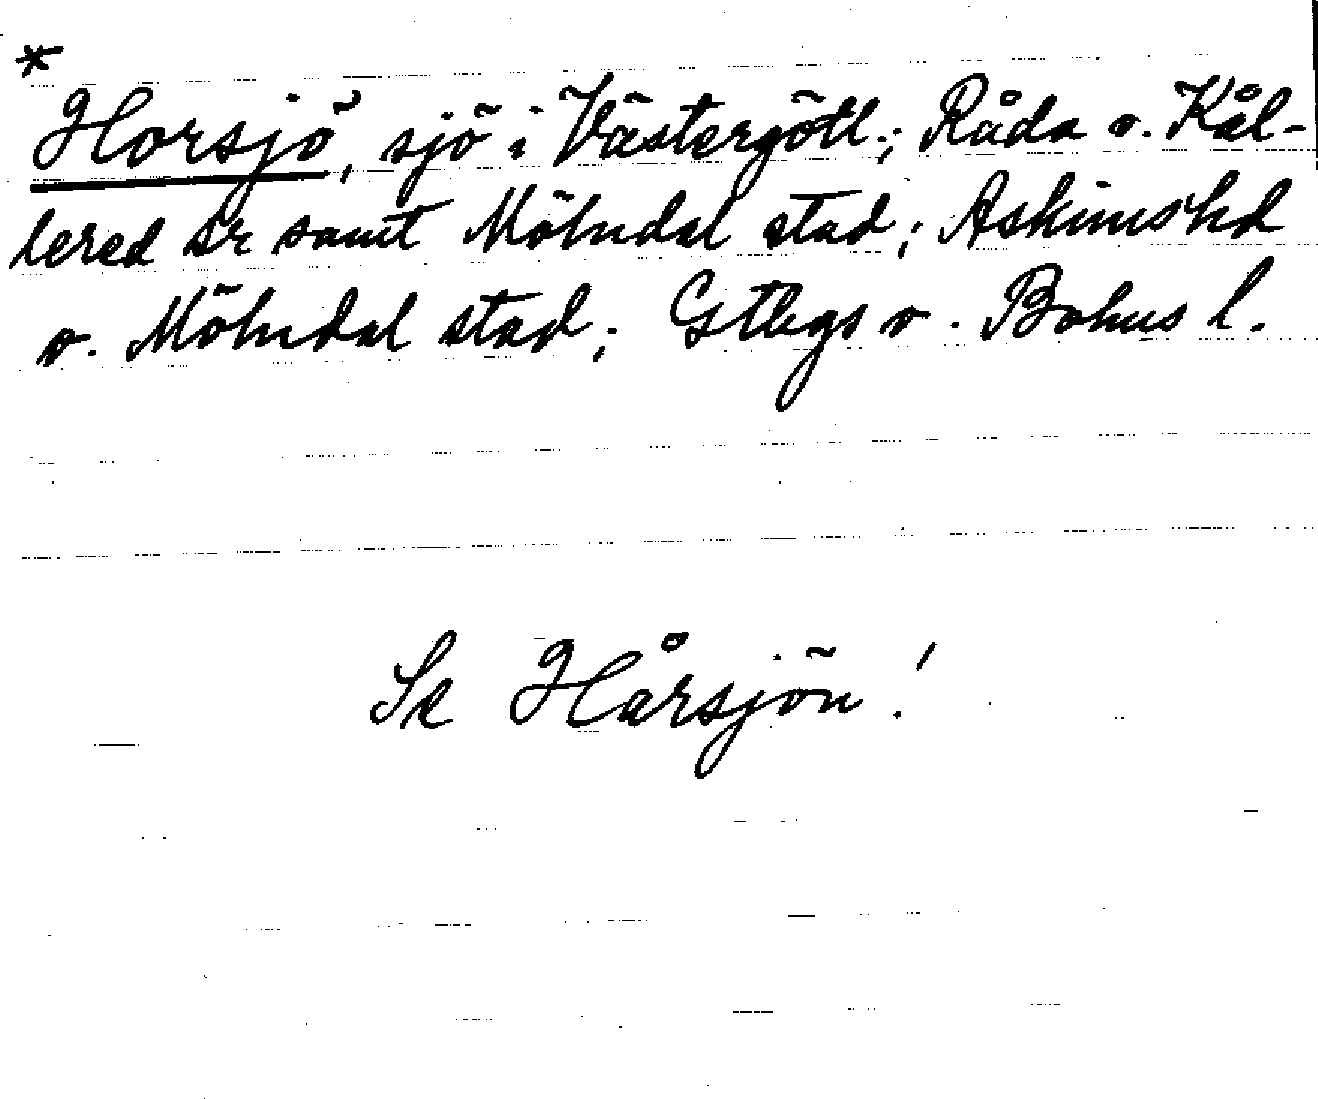 *
Horsjö, sjö i Västergötl.; Råda o. Kål-
lered sr samt Mölndal stad; Askims hd
o. Mölndal stad; Gtbgs o. Bohus l.
Se Hårsjön!